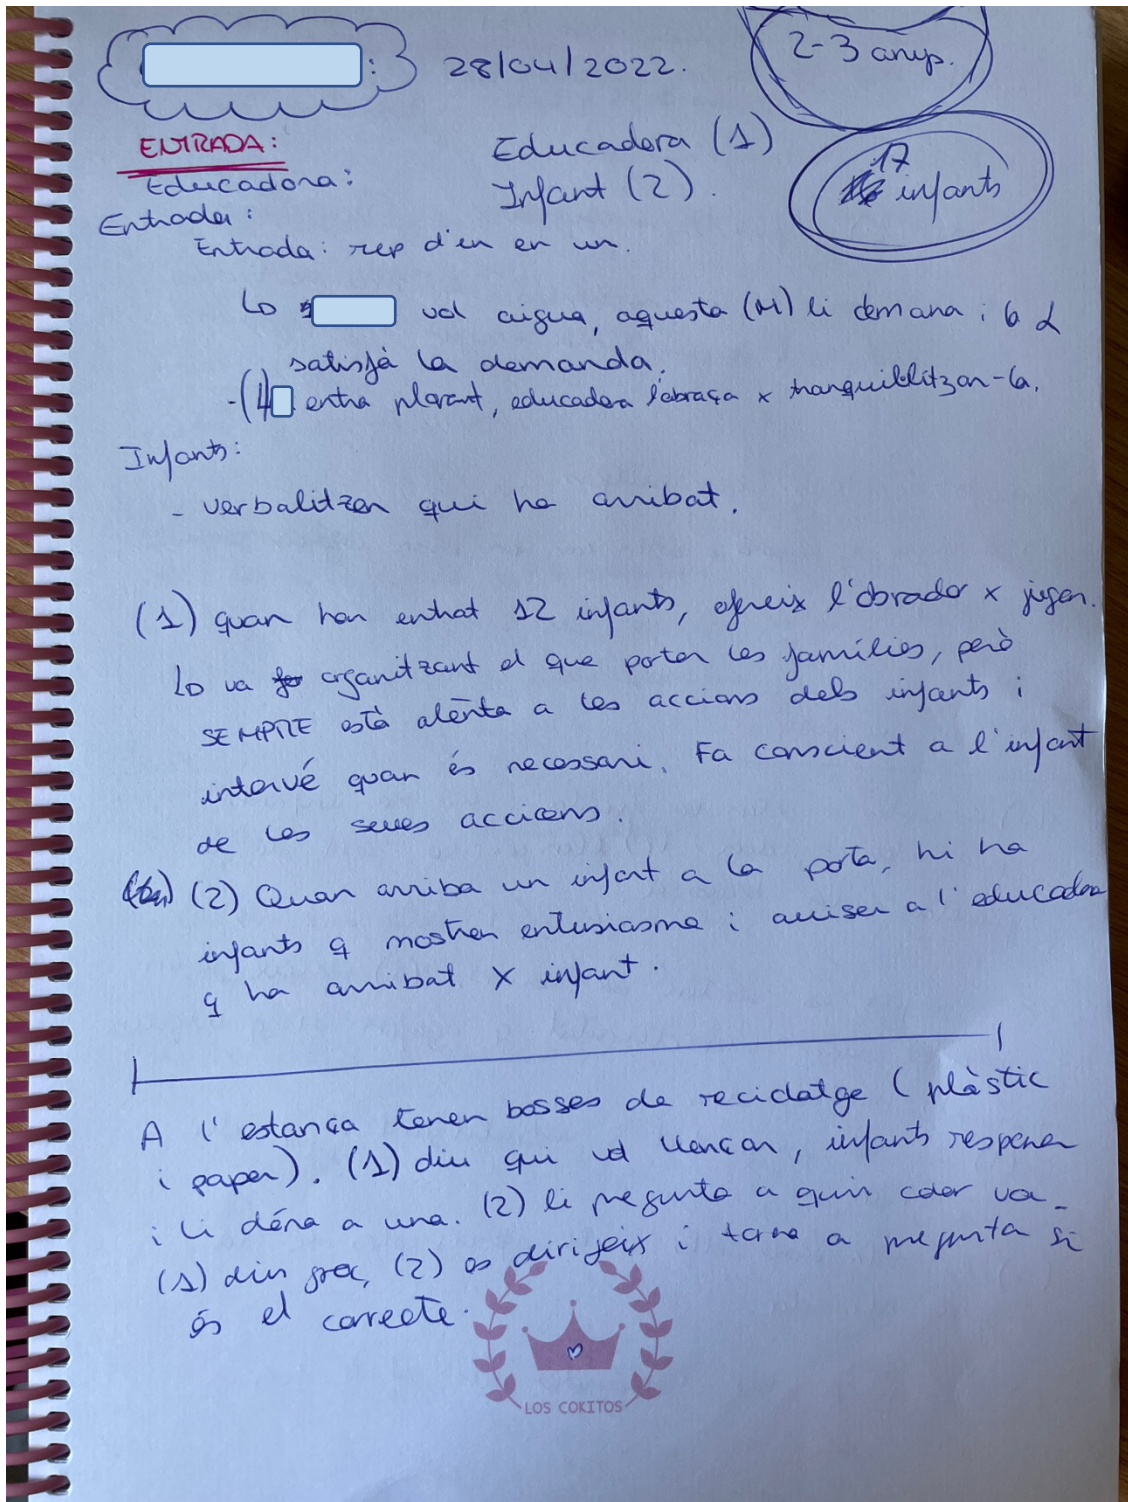 : 28/04/2022.
2-3 anys.
ENTRADA:
Educadora (1)
17 infants
Educadora:
Infant (2).
Entrada:
Entrada: rep d'un en un.
vol aigua, aquesta (M) li demana i
satisfà la demanda.
entra plorant, educadora l'abraça x tranquil·litzar-la.
Infants:
- verbalitzen qui ha arribat.
(1) quan han entrat 12 infants, ofereix l'obrador x jugar.
Lo va organitzant el que porten les famílies, però
SEMPRE està atenta a les accions dels infants i
intervé quan és necessari. Fa conscient a l'infant
de les seves accions.
(2) Quan arriba un infant a la porta, hi ha
infants q mostren entusiasme i avisen a l'educadora
q ha arribat X infant.
A l'estança tenen bosses de reciclatge (plàstic
i paper). (1) diu qui vol llençar, infants responen
i li dóna a una. (2) li pregunta a quin color va.
(1) diu groc, (2) es dirigeix i torna a pregunta si
és el correcte.
LOS COKITOS